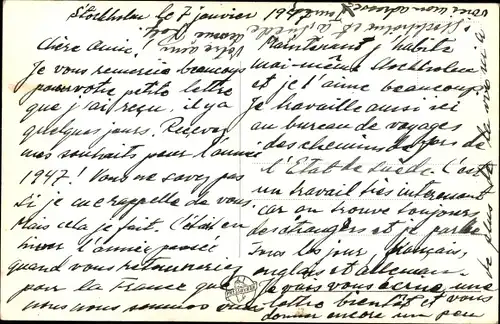 Stockholm le 7 janvier 1947
Chère Amie!
Je vous remercie beaucoup
pour votre petite lettre
que j'ai reçu, il y a
quelques jours. Recevez
mes souhaits pour l'année
1947! Vous ne savez pas
si je me rappelle de vous
Mais cela je fait. C'était en
hiver l'année passé
quand vous retourneriez
pour la France que
nous nous sommes vus
Maintenant j'habite
moi-même Stockholm
et je l'aime beaucoup.
Je travaille aussi ici
au bureau de voyages
des chemins de fer de
l'Etat de Suède. C'est
un travail très intéressant
car on trouve toujours
des étrangers et je parle
tous les jours français,
anglais et allemand.
Je vais vous écrire une
lettre bientôt et vous
donner encore un peu
de plus de
Stockholm et la Suède
Votre amie
voici mon adresse